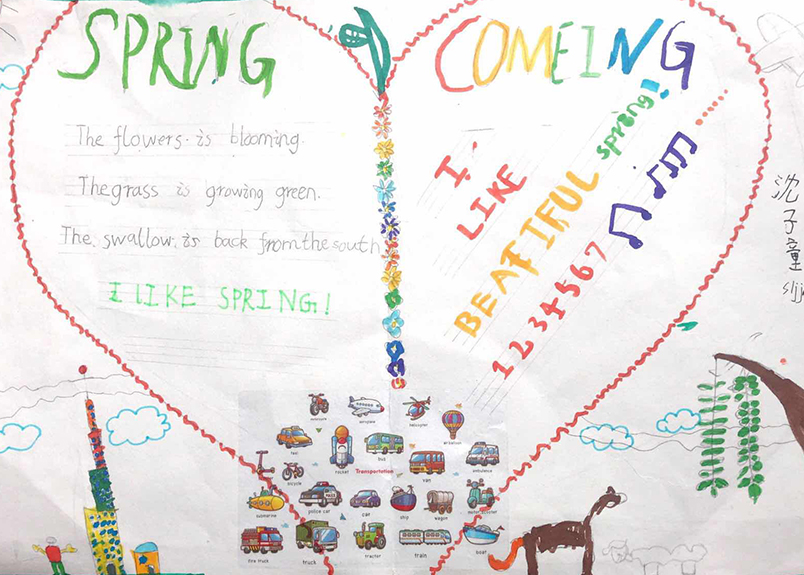 SPRING
The flowers. is blooming.
The grass is growing green.
The. swallow. is back from the south
I LIKE SPRING!
COMEING
I
LIKE
BEATIFUL spring!!
1234567
沈子童
motorcycle
airplane
helicopter
taxi
rocket
bus
Transportation
van
ambulance
bicycle
submarine
police car
car
ship
wagon
motor scooter
fire truck
truck
tractor
train
boat